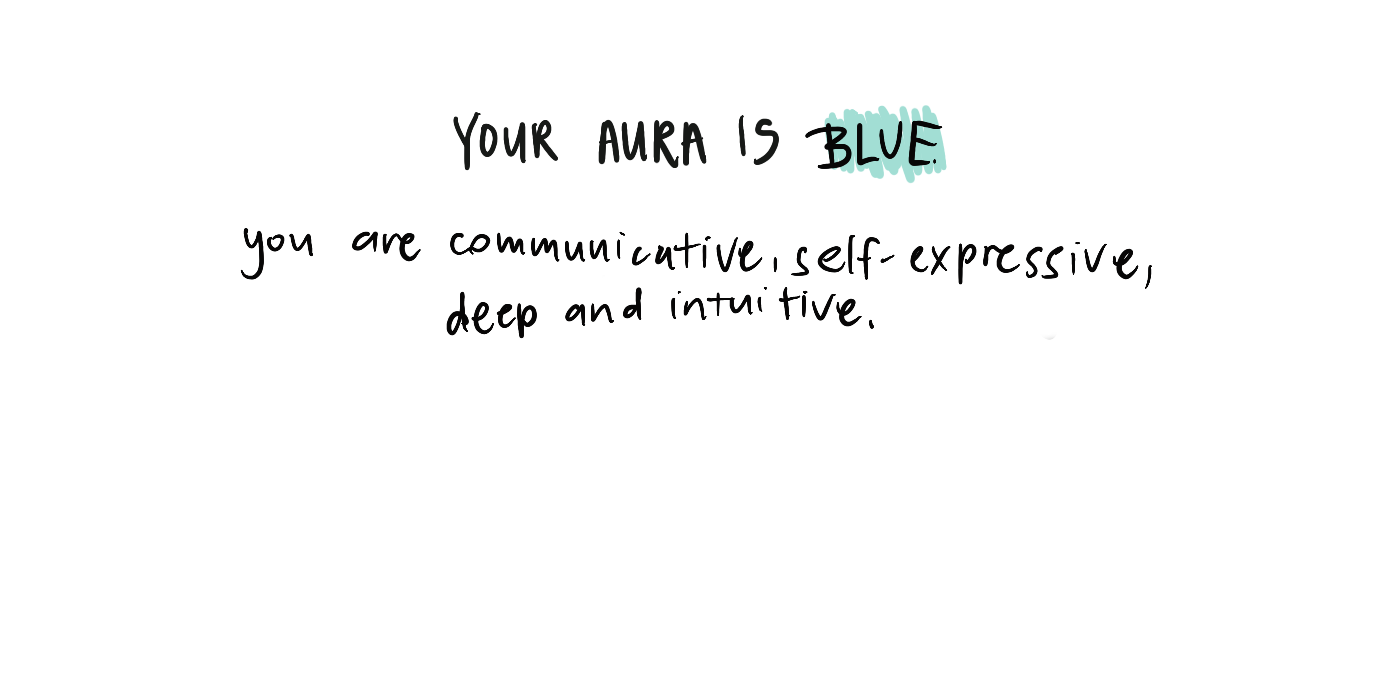 YOUR AURA IS BLUE.
you are communicative, self-expressive,
deep and intuitive.